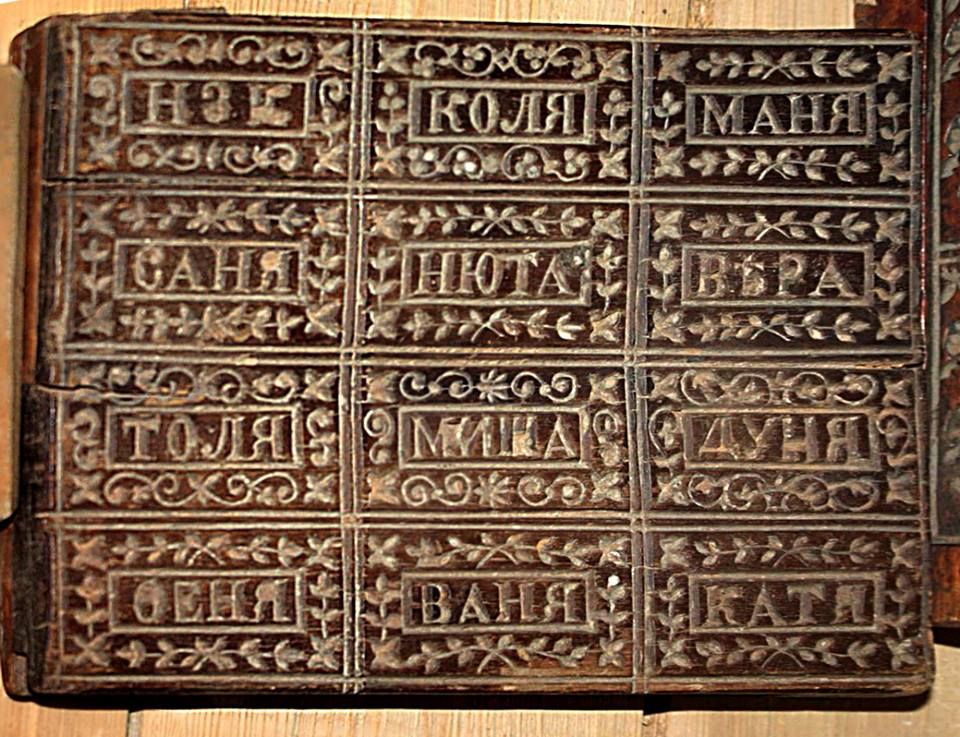 Н З К КОЛЯ МАНЯ
САНЯ НЮТА ВѢРА
ТОЛЯ МИША ДУНЯ
ѲЕНЯ ВАНЯ КАТЯ